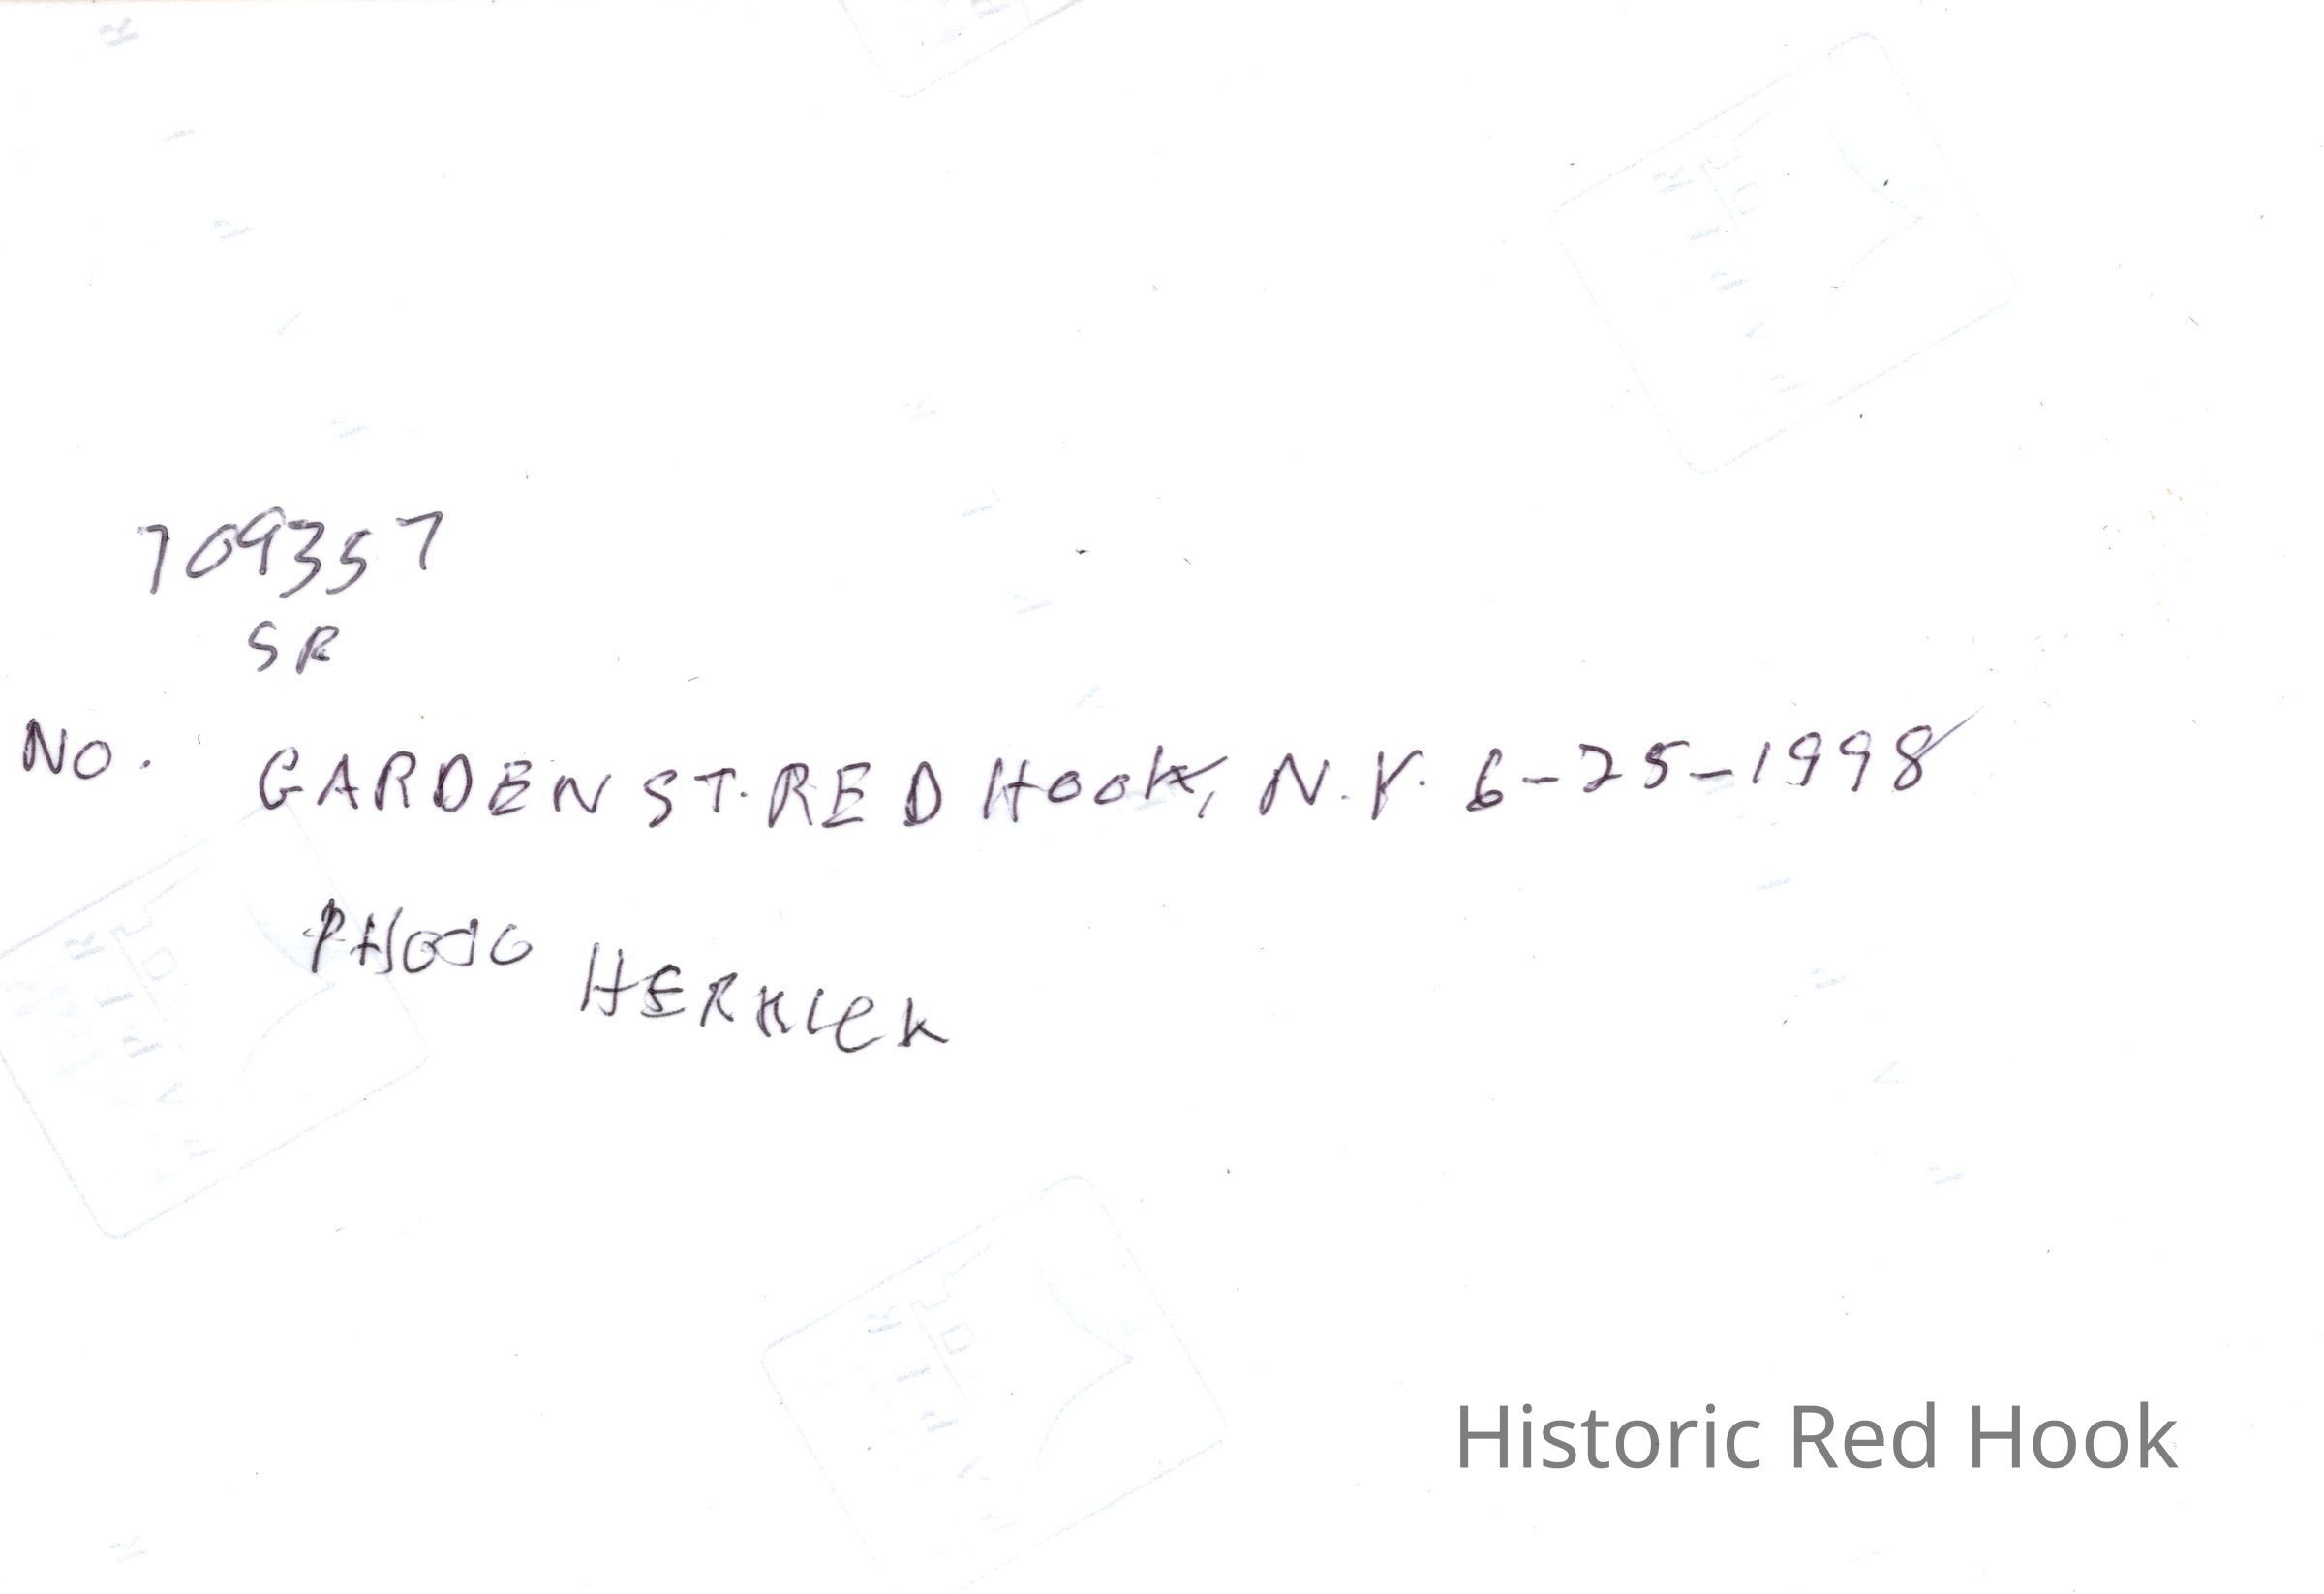 709357
SR
No. GARDEN ST. RED HOOK, N.Y. 6-25-1998
PHOTO HERRICK
Historic Red Hook